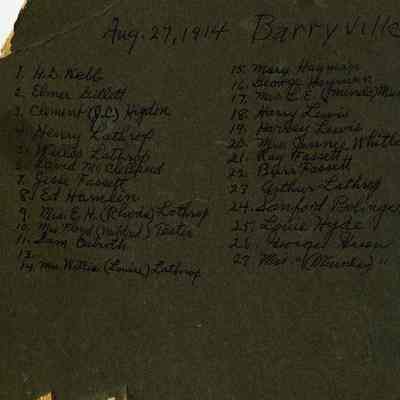 Aug. 27, 1914 Barryville
1. H.D. Kebb
2. Elmer Gillett
3. Clement (J.C.) Higdon
4. Henry Lathrop
5. Willis Lathrop
6. David McClelland
7. Jesse Fassett
8. Ed Hamlin
9. Mrs. E. H. (Rhoda) Lathrop
10. Mrs Floyd (Mildred) Teeter
11. Sam
13.
14. Mrs Willis (Louise) Lathrop
15. Mary Hayman
16. George Heyman
17. Mrs. C. E. (Minnie)
18. Harry Lewis
19. Harvey Lewis
20. Mrs Jennie
21. Ray Fassett
22. Burr Fassett
23. Arthur Lathrop
24. Sanford Bolinger
25. Louie Hyde
26. George Green
27. Mrs " "